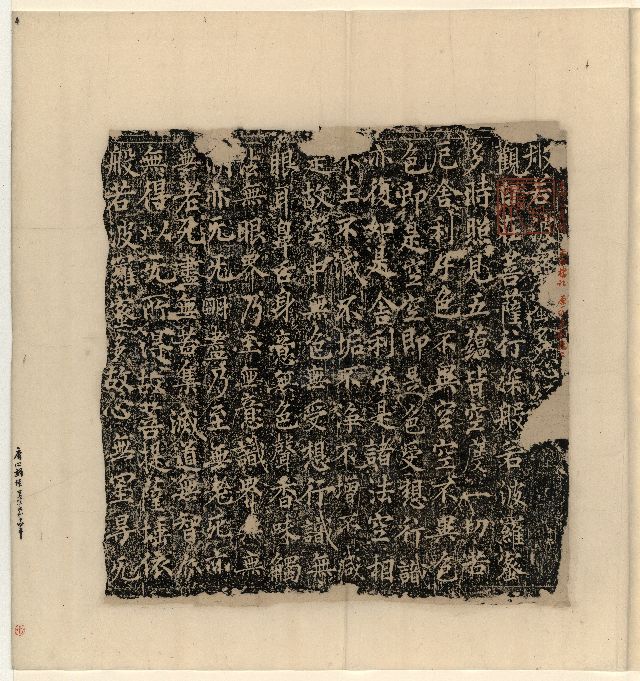 般若
觀自在菩薩行深般若波羅蜜
多時照見五蘊皆空度一切苦
厄舍利子色不異空空不異色
色即是空空即是色受想行識
亦復如是舍利子是諸法空相
不生不滅不垢不淨不增不減
是故空中無色無受想行識無
眼耳鼻舌身意無色聲香味觸
法無眼界乃至無意識界無
亦无无明盡乃至無老死亦
無老死盡無苦集滅道無智亦
無得以无所得故菩提薩埵依
般若波羅蜜多故心無罣导无
唐心經